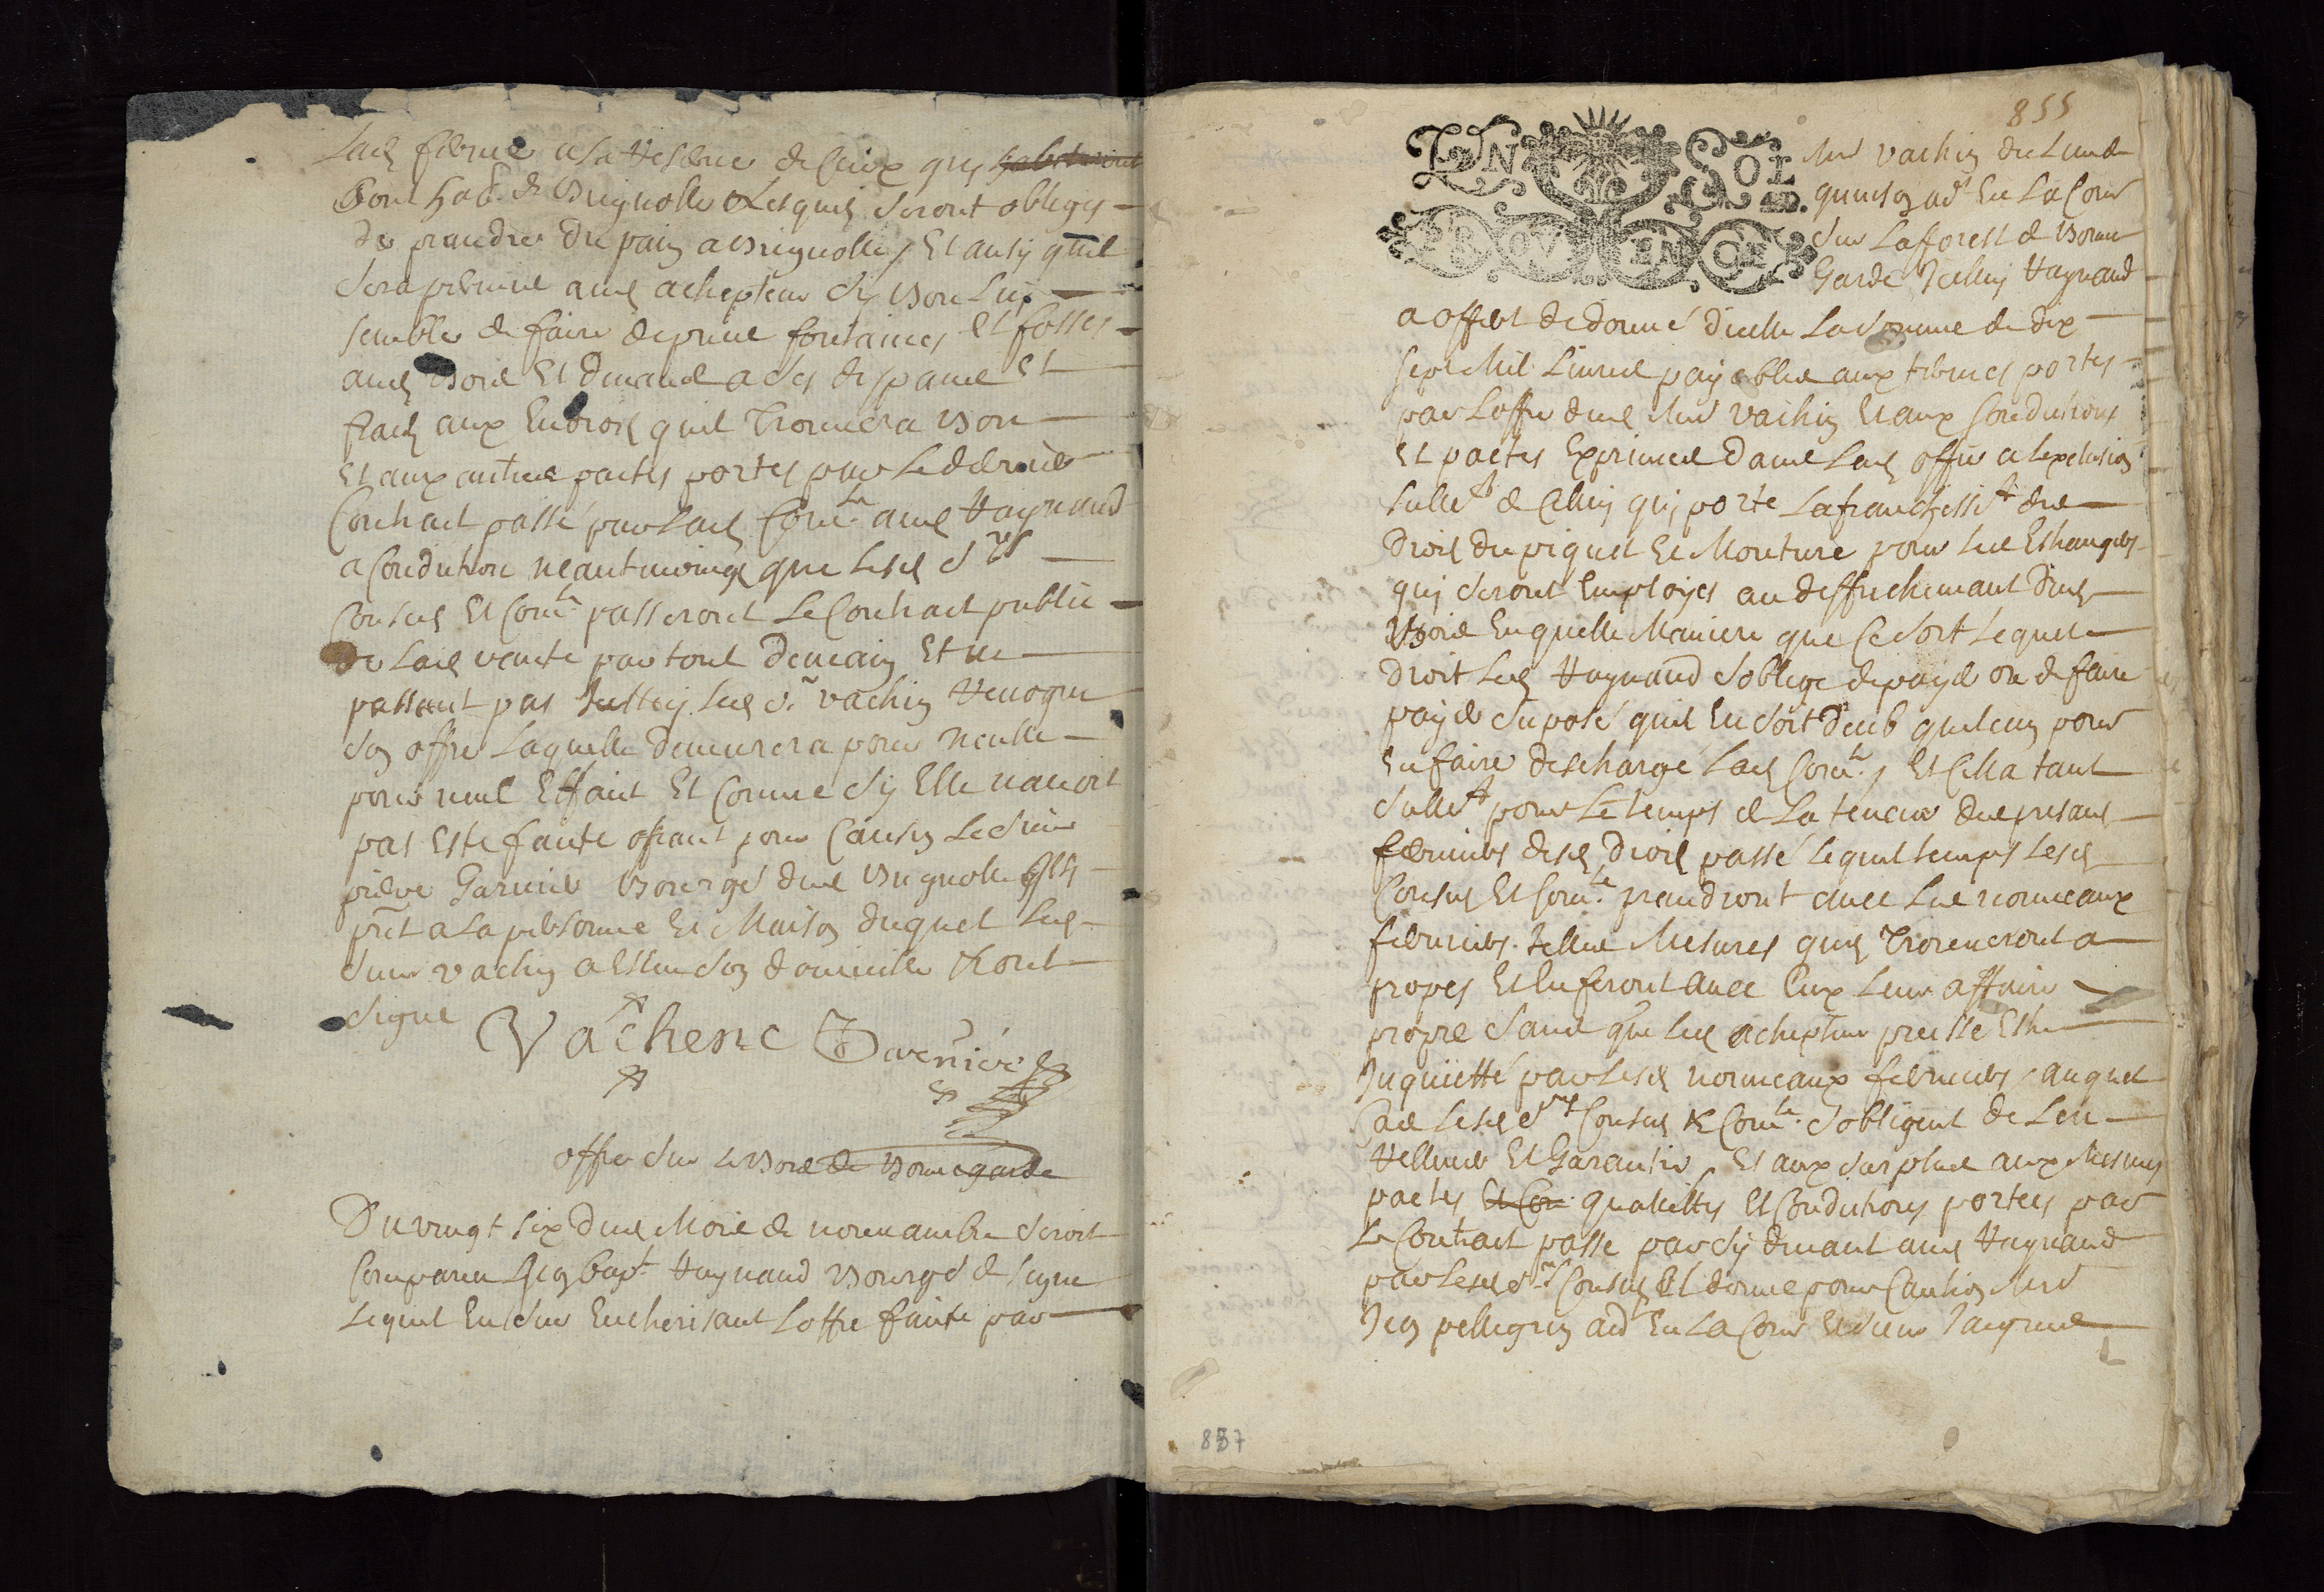 Lad ferme a la reserve de ceux quy habiteront
sont hab. de Brignolle Lesquels seront obliges
de prandre du pain a Brignolle, Et ausy quil
sera permis aud achepteur sy bon luy
semble de faire de prise fontaines et fosses
aud Bois Et devand a ses despans Et
fraix aux Endrois quil trouvera bon
Et aux autres pactes portes par le dernier
Contract passé par lad Com.te aud Raynaud
a Condition neantmoings que lesd srs
Consuls Et Com.te passeront le Contract public
de lad vante par tout demain Et ne
passant pas Justtey led sr vachin revoque
son offre laquelle demeurera pour nulle
pour nul Effaict Et Comme sy Elle navoit
pas Este faicte ofrant pour Caution le sieur
pierre Garnier bourgs dud Brignolle
prnt a la personne Et Maison duquel led
sieur vachin a Esleu son domicille & ont
signe
Vachenc Garnier
offre sur le Bois de Bonnegarde
Du vingt six dud Mois de novembre seroit
Comparu Jean bap.t Raynaud Bourgs de signe
lequel En sur Encherisant loffre faicte par
855
IVN SOL
PROVENCE
Mre vachin du lundi
quinson adt En la Cour
sur la fforest de Bonne
Garde Icelluy Raynaud
a offert de donné dicelle la somme de dix
sept Mil Livres payables aux termes portes
par loffre dud Mre vachin Et aux Conditions
Et pactes Exprimes dans lad offre a lexclusion
sullet de Celluy quy porte la franchessit des
Drois du piquet Et Mouture pour les Estrangers
quy seront Employes au deffrichemant dud
Bois En quelle Maniere que Ce soit lequel
Droit led Raynaud soblige de payer ou de faire
payer suposé quil En soit deub quelcun pour
En faire descharge lad Com.te, Et Cella tant
sullet pour le temps de la teneur des presans
fermiers desd Drois passé lequel temps lesd
Consuls Et Com.te prandront avec les nouveaux
fermiers telles Mesures quils trouveront a
propos Et En feront avec Eux leur affaire
propre sans que led achepteur puisse Estre
Inquietté par lesd nouveaux fermiers, auquel
Cas lesd srs Consuls & Com.te sobligent de len
rellever Et Garantir, Et aux surplus aux Mesmes
pactes Et Con qualittes Et Conditions portees par
le Contract passe par sy devant aud Raynaud
par lesd srs Consuls Et donne pour Caution Mre
Jean pellegrin adt En la Cour Et sieur Jacques
857